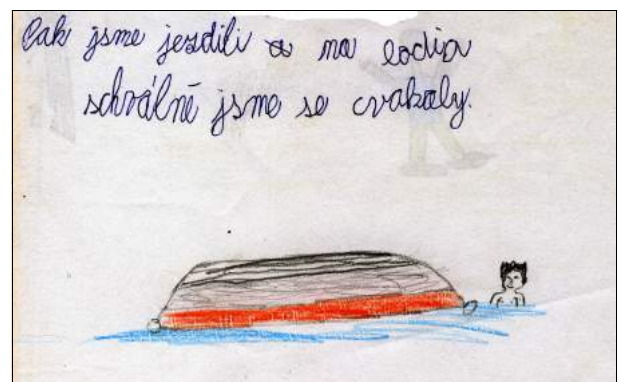 Cak jsme jezdili a na lodia
schválně jsme se cvakaly.